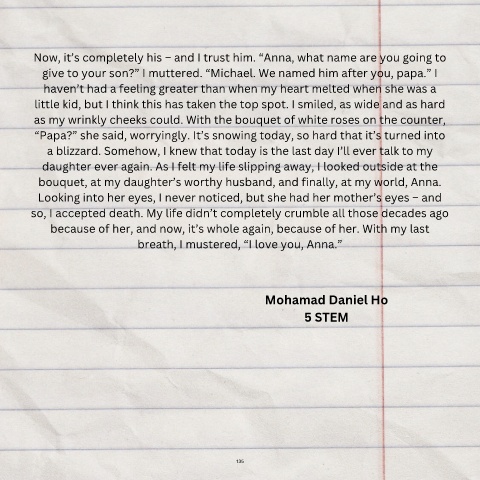 Now, it's completely his – and I trust him. “Anna, what name are you going to
give to your son?” I muttered. “Michael. We named him after you, papa.” I
haven't had a feeling greater than when my heart melted when she was a
little kid, but I think this has taken the top spot. I smiled, as wide and as hard
as my wrinkly cheeks could. With the bouquet of white roses on the counter,
“Papa?” she said, worryingly. It's snowing today, so hard that it's turned into
a blizzard. Somehow, I knew that today is the last day I'll ever talk to my
daughter ever again. As I felt my life slipping away, I looked outside at the
bouquet, at my daughter's worthy husband, and finally, at my world, Anna.
Looking into her eyes, I never noticed, but she had her mother's eyes – and
so, I accepted death. My life didn't completely crumble all those decades ago
because of her, and now, it's whole again, because of her. With my last
breath, I mustered, “I love you, Anna.”
Mohamad Daniel Ho
5 STEM
135